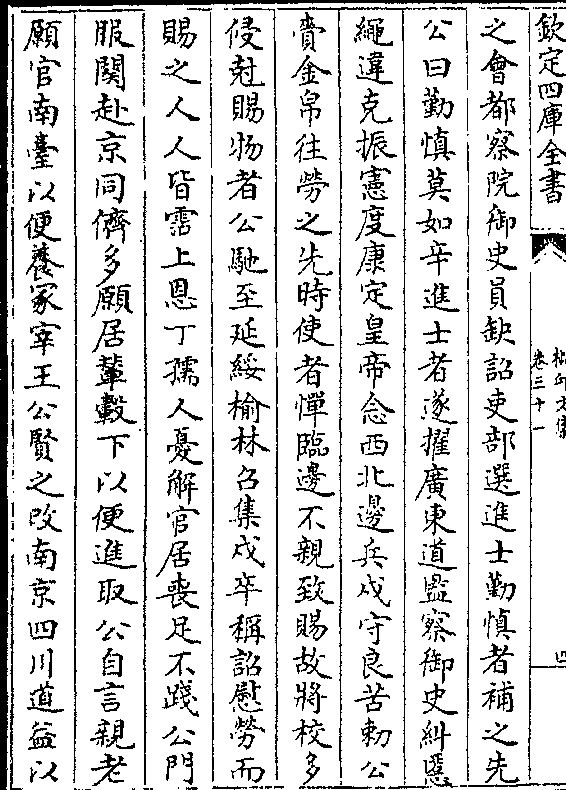 欽定四庫全書
卷三十一
四
之會都察院御史員缺詔吏部選進士勤慎者補之先
公曰勤慎莫如辛進士者遂擢廣東道監察御史糾慝
繩違克振憲度康定皇帝念西北邊兵戍守良苦勅公
賫金帛往勞之先時使者憚臨邊不親致賜故將校多
侵尅賜物者公馳至延綏榆林召集戍卒稱詔慰勞而
賜之人人皆霑上恩丁孺人憂解官居喪足不踐公門
服闋赴京同儕多願居輦轂下以便進取公自言親老
願官南臺以便養冢宰王公賢之改南京四川道益以